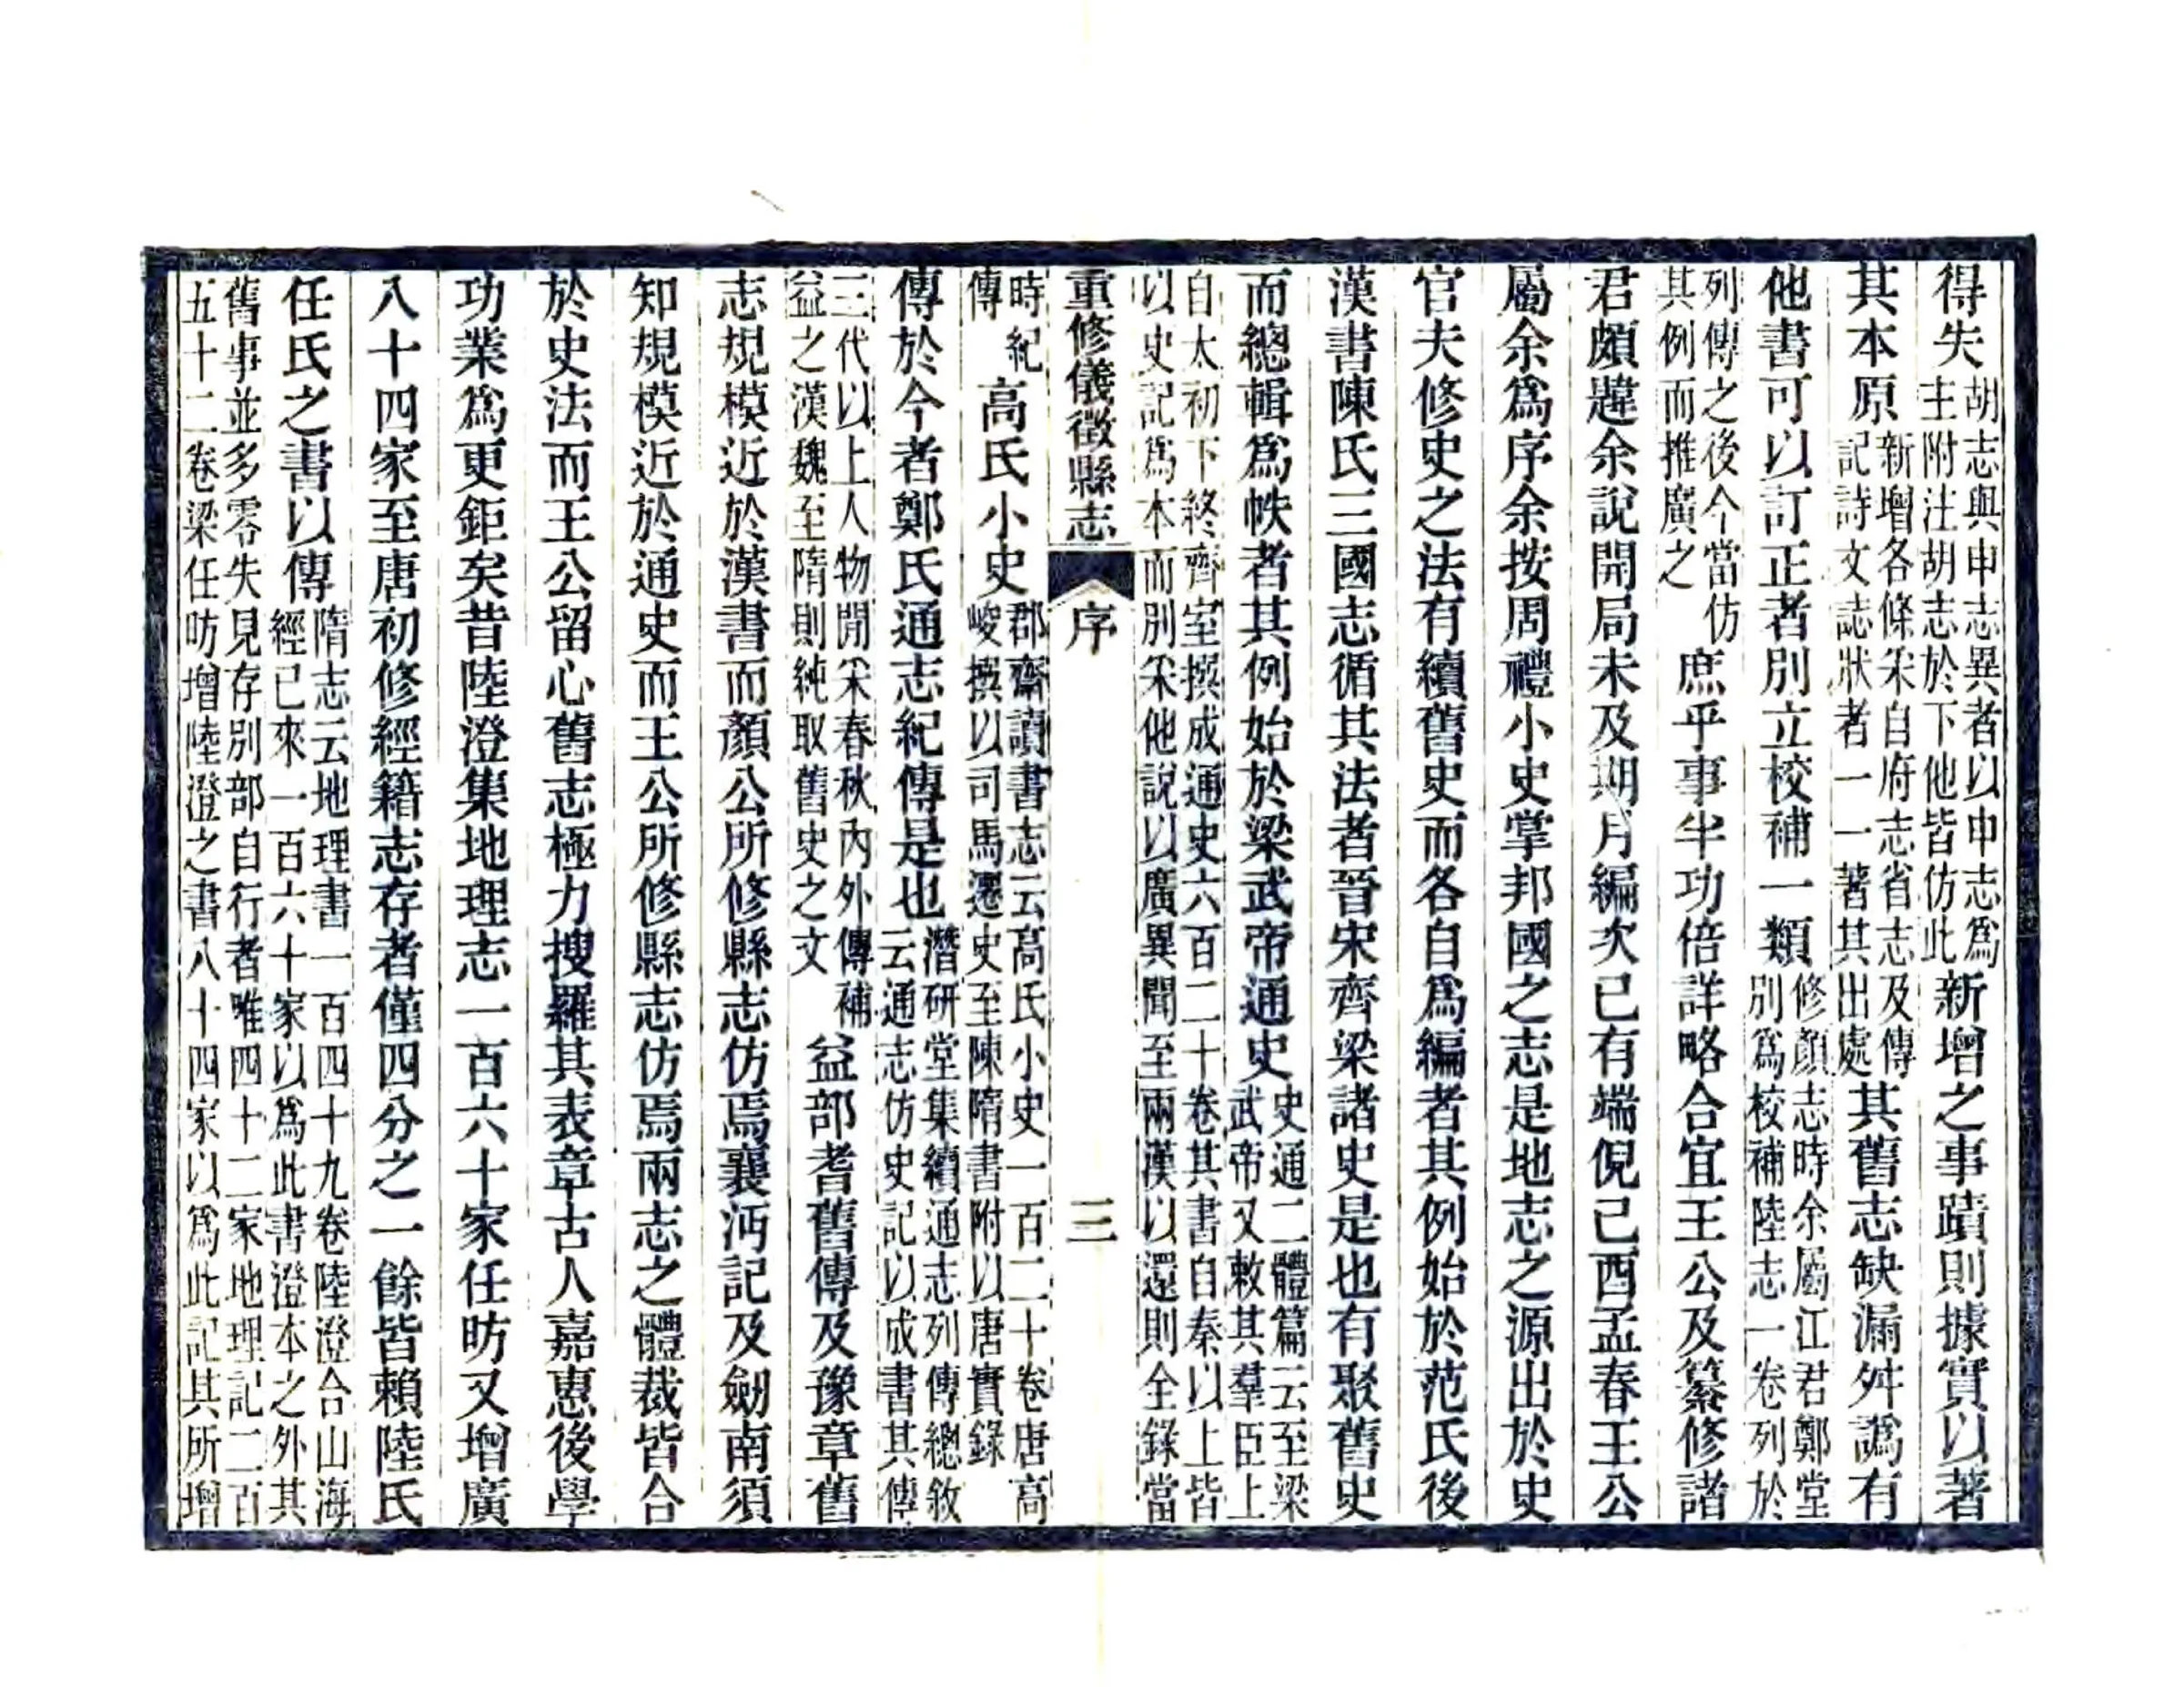 得失胡志與申志異者以申志爲主附注胡志於下他皆仿此新增之事蹟則據實以著
其本原新增各條采自府志省志及傳記詩文誌狀者一一著其出處其舊志缺漏舛譌有
他書可以訂正者別立校補一類修顏志時余屬江君鄭堂別爲校補陸志一卷列於
列傳之後今當仿其例而推廣之庶乎事半功倍詳略合宜王公及纂修諸
君頗韙余說開局未及期月編次已有端倪己酉孟春王公
屬余爲序余按周禮小史掌邦國之志是地志之源出於史
官夫修史之法有續舊史而各自爲編者其例始於范氏後
漢書陳氏三國志循其法者晉宋齊梁諸史是也有聚舊史
而總輯爲帙者其例始於梁武帝通史史通二體篇云至梁武帝又敕其羣臣上
自太初下終齊室撰成通史六百二十卷其書自秦以上皆以史記爲本而別采他說以廣異聞至兩漢以還則全錄當
重修儀徵縣志 序 三
時紀傳高氏小史郡齋讀書志云高氏小史一百二十卷唐高峻撰以司馬遷史至陳隋書附以唐實錄
傳於今者鄭氏通志紀傳是也潛研堂集續通志列傳總敘云通志仿史記以成書其傳
三代以上人物閒采春秋內外傳補益之漢魏至隋則純取舊史之文益部耆舊傳及豫章舊
志規模近於漢書而顏公所修縣志仿焉襄沔記及劒南須
知規模近於通史而王公所修縣志仿焉兩志之體裁皆合
於史法而王公留心舊志極力搜羅其表章古人嘉惠後學
功業爲更鉅矣昔陸澄集地理志一百六十家任昉又增廣
八十四家至唐初修經籍志存者僅四分之一餘皆賴陸氏
任氏之書以傳隋志云地理書一百四十九卷陸澄合山海經已來一百六十家以爲此書澄本之外其
舊事並多零失見存別部自行者唯四十二家地理記二百五十二卷梁任昉增陸澄之書八十四家以爲此記其所增